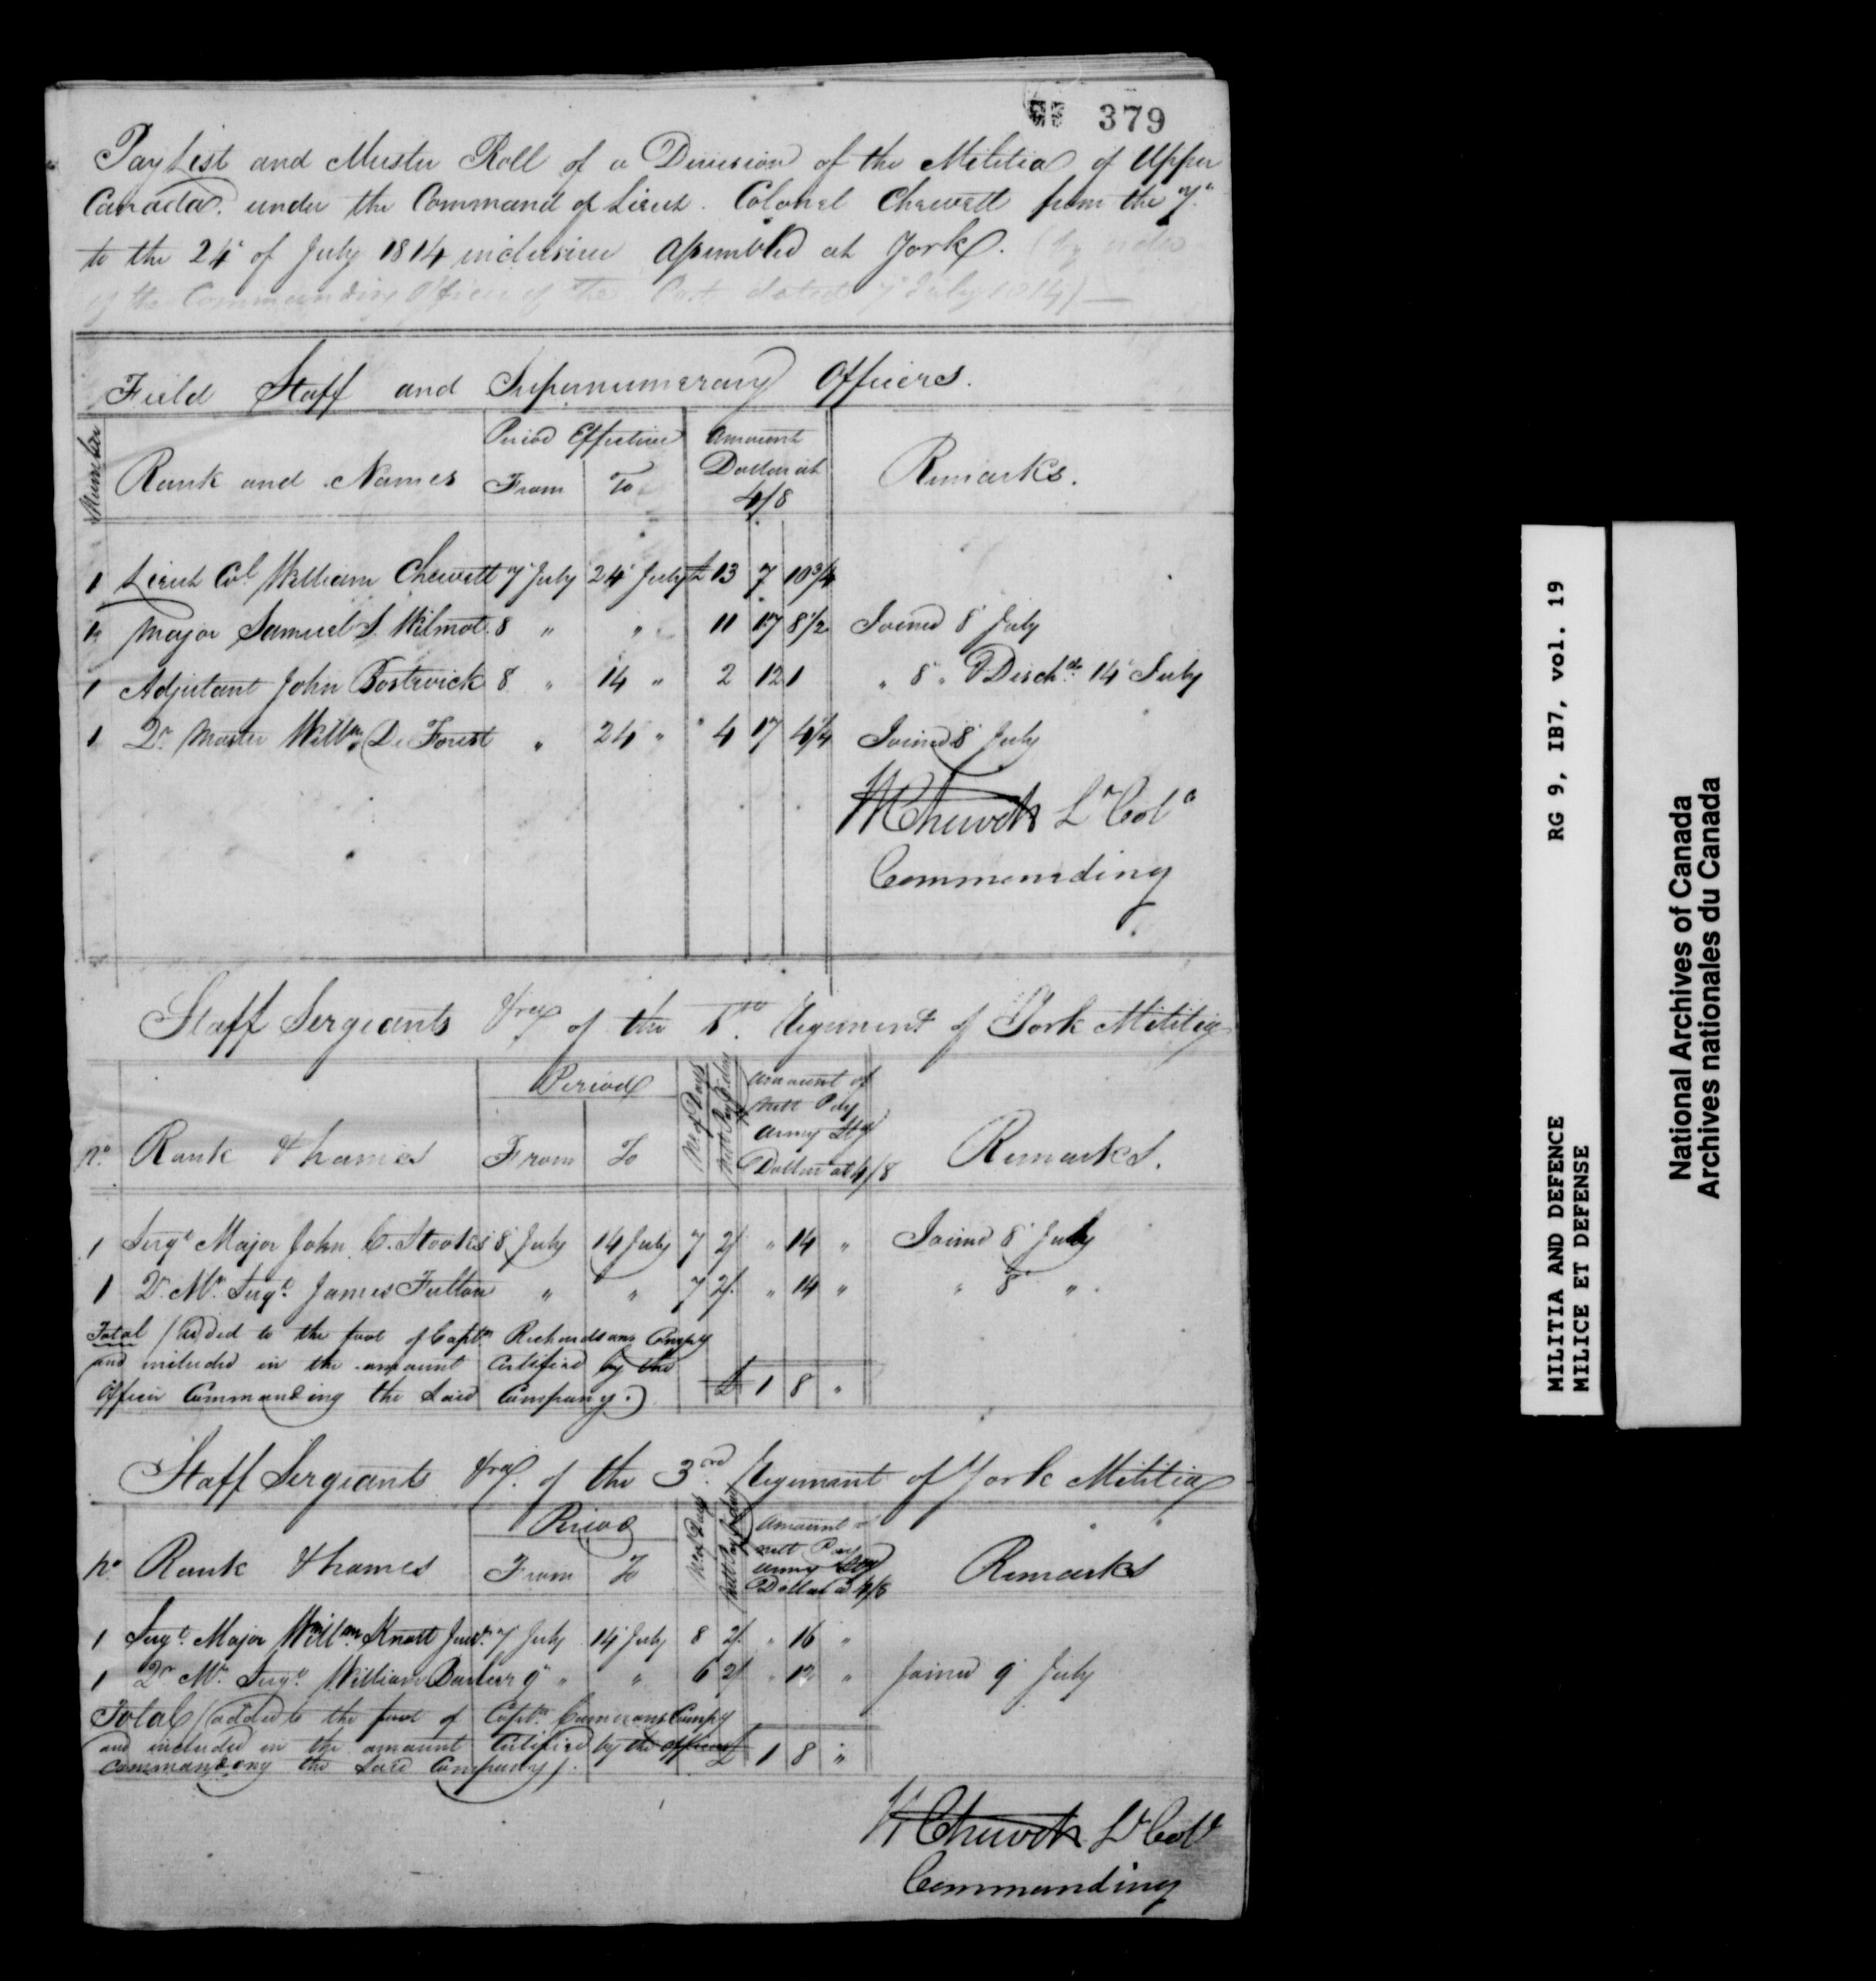 379
Pay List and Muster Roll of a Division of the Militia of Upper
Canada. under the Command of Lieut. Colonel Chewett from the 7th
to the 24th of July 1814 inclusive assembled at York. (by order
of the Commanding Officer of the Post dated 7 July 1814)—
Field Staff and Supernumerary Officers.
Number | Rank and Names | Period Effective From | To | Amount Dollar at 4/8 | Remarks.
1 Lieut Col William Chewett 7 July 24 July £ 13 7 10 3/4
1 Major Samuel S. Wilmot 8 " " 11 17 8 1/2 Joined 8 July
1 Adjutant John Bostwick 8 " 14 " 2 12 1 " 8 " & Dischd. 14 July
1 Qr. Master Willm. De Forest " 24 " 4 17 4 1/4 Joined 8 July
W Chewett Lt Col
Commanding
Staff Sergeants &ca. of the Regiment of York Militia
No. | Rank & Names | Period From | To | No of Days | Nett Pay P. day | Amount of Nett Pay Army Stg Dollar at 4/8 | Remarks.
1 Sergt Major John C. Stooks 8 July 14 July 7 2/ " 14 " Joined 8 July
1 Qr. Mr. Sergt. James Fulton " " 7 2/ " 14 " " 8 " .
Total (added to the foot of Captn Richardsons Compy
and included in the amount Certified by the
Officer Commanding the said Company.) £ 1 8 "
Staff Sergeants &ca. of the 3rd. Regiment of York Militia
No. | Rank & Names | Period From | To | No of Days | Nett Pay P. day | Amount of Nett Pay Army Stg Dollar @ 4/8 | Remarks
1 Sergt. Major Willm. Knott Junr. 7 July 14 July 8 2/ " 16 "
1 Qr Mr. Sergt. William Barber 9 " " 6 2/ " 12 " Joined 9 July
Total (added to the foot of Captn. Camerons Compy
and included in the amount Certified by the officer £ 1 8 "
commanding the said Company).
W Chewett Lt Col
Commanding
MILITIA AND DEFENCE RG 9, IB7, vol. 19
MILICE ET DEFENSE
National Archives of Canada
Archives nationales du Canada